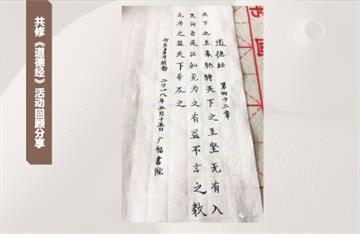 共修《道德经》活动回顾分享
道德经
第四十二章
天下之至柔驰骋天下之至坚无有入
无间吾是以知无为之有益不言之教
无为之益天下希及之
二〇一八年 月十五日 广福书院